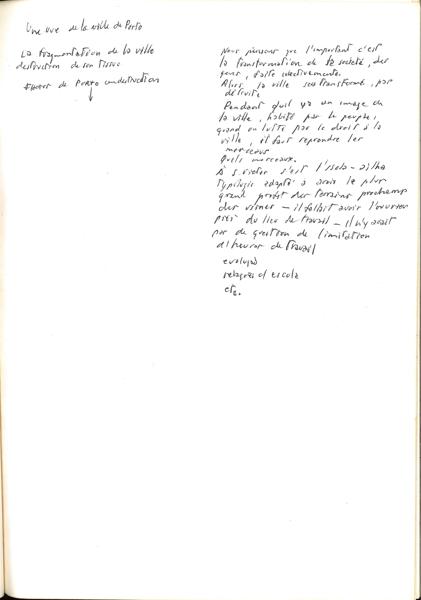 Une vue de la ville de Porto
La fragmentation de la ville
destruction de son tissu
de Porto
Nous pensons que l'important c'est
la transformation de la societé, des
gens, faite collectivement.
Alors la ville se transforme, par
Pendant qu'il y a un image de
la ville, habité par le peuple,
quand on lutte par le droit à la
ville, il faut reprendre les
morceaux
Quels morceaux.
À S. Victor c'est l' - ilha
typologie adapté à avoir le plus
grand profit des terrains prochains
des usines - il fallait avoir l'ouvrier
près du lieu de travail - il n'y avait
pas de question de limitation
d'heures de travail
evolução
relações d'escala
etc.